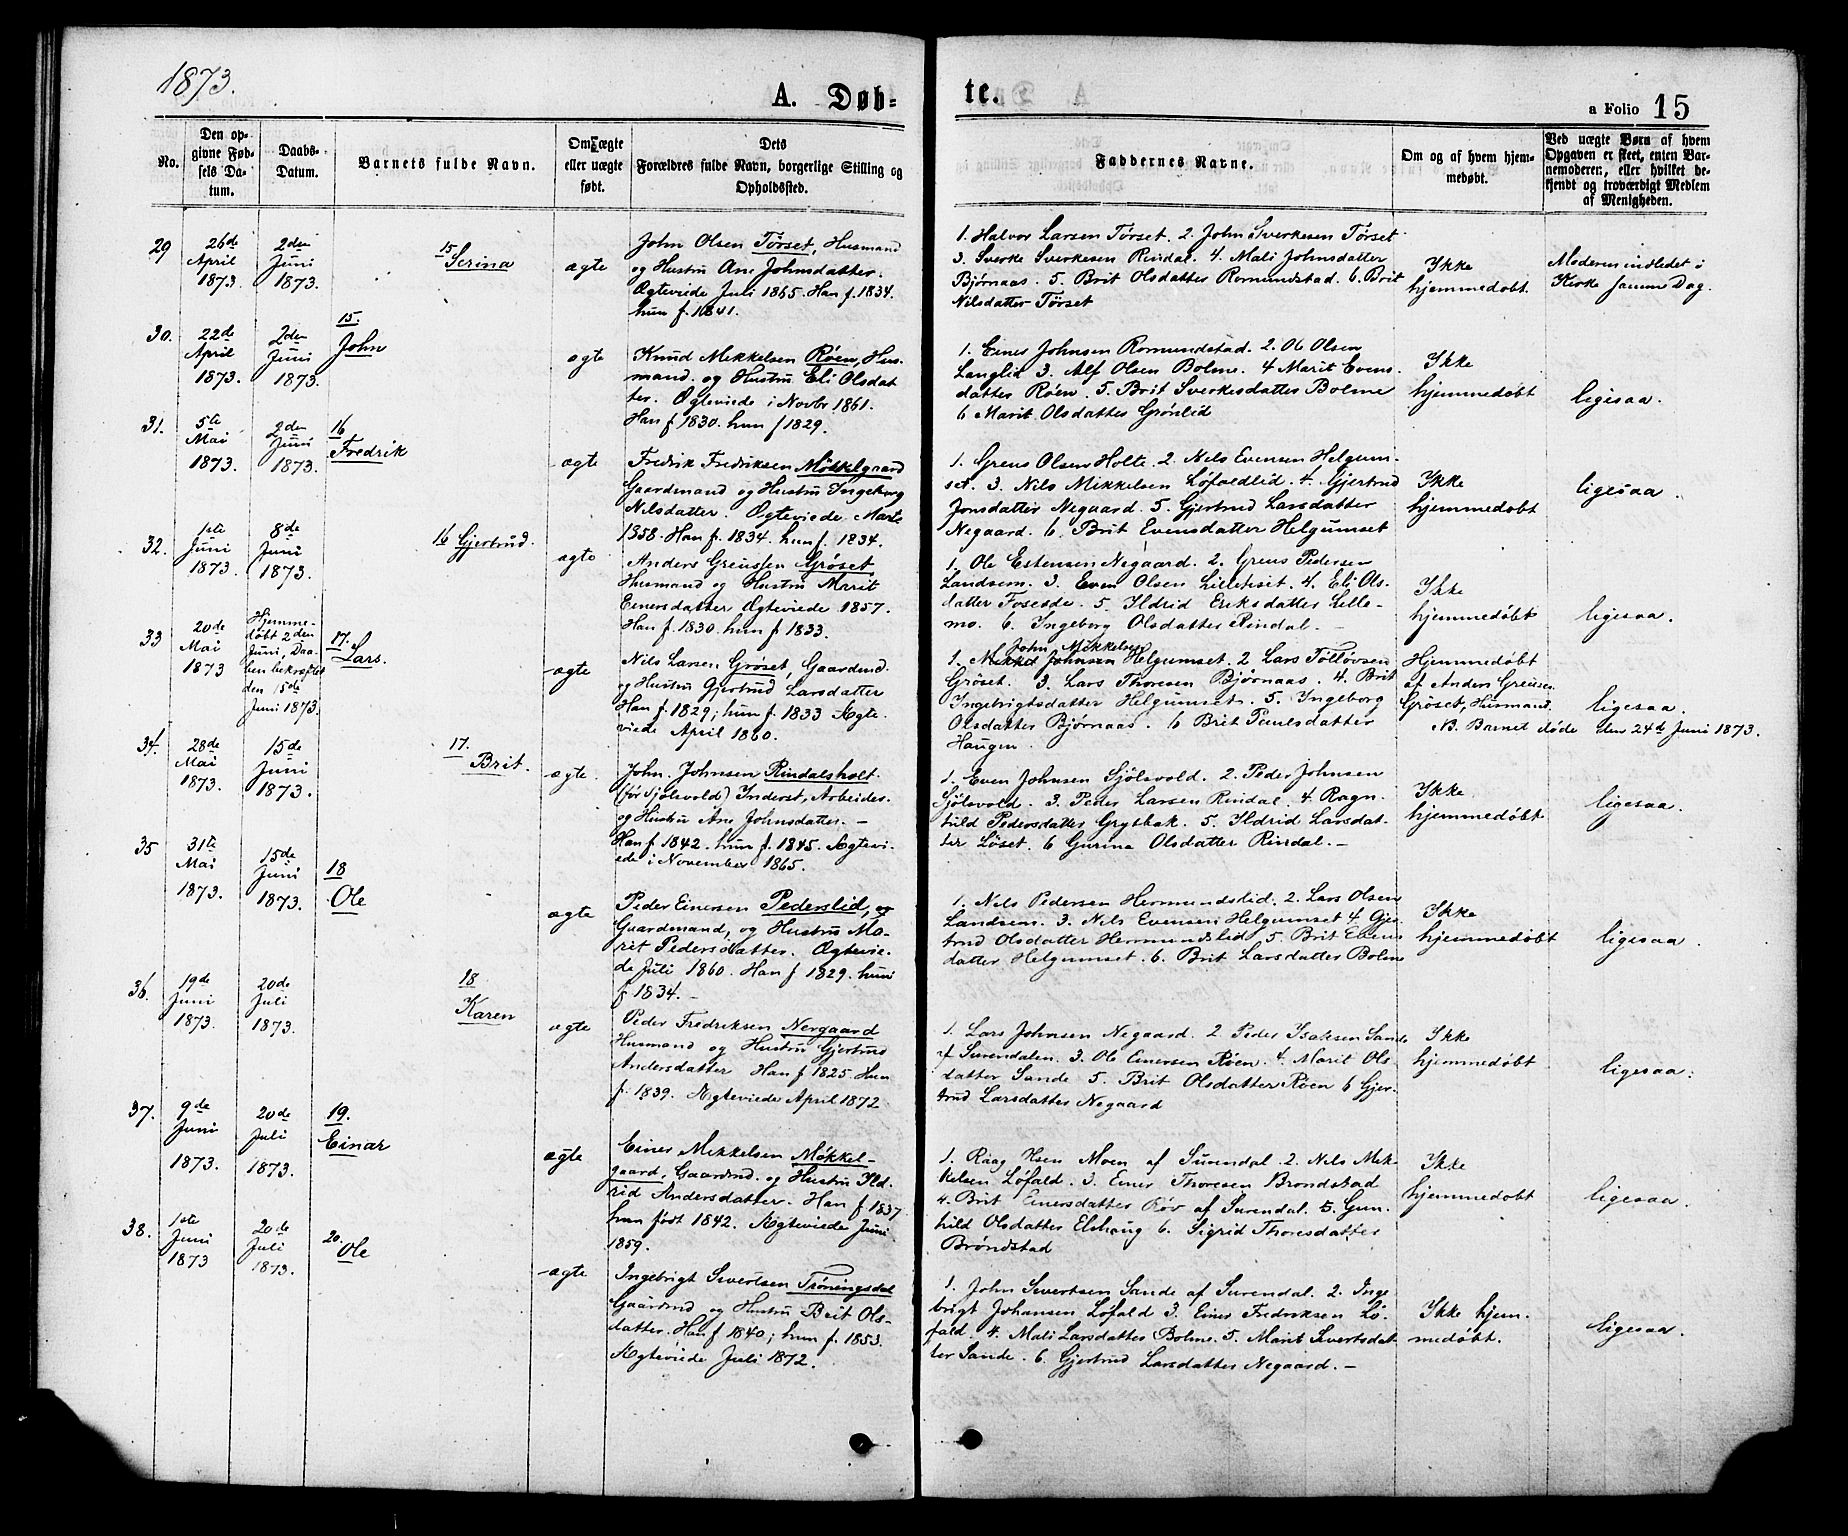 1873.
A. Døb-
te.
a Folio 15
No.
Den op-
givne Fød-
sels Da-
tum.
Daabs-
Datum.
Barnets fulde Navn.
Om ægte
eller uægte
født.
Dets
Forældres fulde Navn, borgerlige Stilling og
Opholdssted.
Faddernes Navne.
Om og af hvem hjem-
medøbt.
Ved uægte Børn af hvem
Opgaven er skeet, enten Bar-
nemoderen, eller hvilket be-
kjendt og troværdigt Medlem
af Menigheden.
29
26de
April
1873.
2den
Juni
1873.
15
Serina
ægte
John Olsen Tørset, Husmand
og Hustru Ane Johnsdatter.
Ægteviede Juli 1865. Han f. 1834.
hun f. 1841.
1. Halvor Larsen Tørset. 2. John Sverkesen Tørset
3. Sverke Sverkesen Rindal. 4. Mali Johnsdatter
Bjørnaas. 5. Brit Olsdatter Romundstad. 6. Brit
Nilsdatter Tørset
Ikke
hjemmedøbt.
Moderen indledet i
Kirke samme Dag.
30.
22de
April
1873.
2den
Juni
1873.
15.
John
ægte
Knud Mikkelsen Røen, Hus-
mand, og Hustru Eli Olsdat
ter. Ægteviede i Novbr 1861.
Han f 1830. hun f 1829.
1. Einer Johnsen Romundstad. 2. Ole Olsen
Langlid 3. Alf Olsen Bolme. 4 Marit Evens-
datter Røen. 5. Brit Sverkesdatter Bolme
6 Marit Olsdatter Grønlid
Ikke
hjemmedøbt
ligesaa.
31.
5te
Mai
1873.
2den
Juni
1873.
16
Fredrik
ægte
Fredrik Fredriksen Møkkelgaard
Gaardmand og Hustru Ingeborg
Nilsdatter. Ægteviede Marts
1858. Han f. 1834. hun f. 1834.
1. Greus Olsen Holte. 2. Nils Evensen Helgum-
set. 3. Nils Mikkelsen Løfaldlid. 4. Gjertrud
Jonsdatter Negaard. 5. Gjertrud Larsdatter
Negaard. 6. Brit Evensdatter Helgumset
Ikke
hjemmedøbt
ligesaa.
32.
1ste
Juni
1873.
8de
Juni
1873.
16 Gjertrud.
ægte
Anders Greussen Grøset
Husmand og Hustru Marit
Einersdatter Ægteviede 1857.
Han f. 1830. hun f 1833.
1. Ole Estensen Negaard. 2. Greus Pedersen
Landsem. 3. Even Olsen Lilleteset. 4. Eli Ols-
datter Foseide. 5. Ildrid Eriksdatter Lille-
mo. 6. Ingeborg Olsdatter Rindal. –
Ikke
hjemmedøbt
ligesaa.
33
20de
Mai
1873
Hjemme-
døbt 2den
Juni, Daa-
ben bekræftet
den 15de
Juni 1873.
17.
Lars.
ægte
Nils Larsen Grøset, Gaardmd.
og Hustru Gjertrud Larsdatter
Han f. 1829; hun f. 1833 Ægte-
viede April 1860.
John Mikkelsen
1. Mikkel Johnsen Helgumset. 2 Lars Tolløvsen
Grøset. 3. Lars Thoresen Bjørnaas. 4. Brit
Ingebrigtsdatter Helgumset. 5. Ingeborg
Olsdatter Bjørnaas. 6 Brit Paulsdatter
Haugen.
Hjemmedøbt
af Anders Greusen
Grøset, Husmand.
ligesaa.
NB. Barnet døde den 24de Juni 1873.
34.
28de
Mai
1873.
15de
Juni
1873.
17.
Brit.
ægte.
John Johnsen Rindalsholt.
(før Sjølsvold) Inderst, Arbeider.
og Hustru Ane Johnsdatter. –
Han f 1842. hun f. 1845. Ægtevi-
ede i November 1865.
1. Even Johnsen Sjølsvold. 2. Peder Johnsen
Sjølsvold. 3. Peder Larsen Rindal. 4. Ragn-
hild Pedersdatter Grytbak. 5. Ildrid Larsdat-
ter Løset. 6 Gurina Olsdatter Rindal. –
Ikke
hjemmedøbt
ligesaa.
35
31te
Mai
1873.
15de
Juni
1873.
18
Ole
ægte
Peder Einersen Pederslid, og
Gaardmand, og Hustru Ma-
rit Pedersdatter. Ægtevie-
de Juli 1860. Han f 1829. hun
f 1834. –
1. Nils Pedersen Hermundslid. 2. Lars Olsen
Landsem. 3. Nils Evensen Helgumset 4. Gjer-
trud Olsdatter Hermundslid. 5. Brit Evens
datter Helgumset. 6. Brit Larsdatter Bolme
Ikke
hjemmedøbt
ligesaa.
36.
19de
Juni
1873.
20de
Juli
1873.
18.
Karen
ægte
Peder Fredriksen Nergaard
Husmand og Hustru Gjertrud
Andersdatter Han f 1825. Hun
f. 1839. Ægteviede April 1872
1. Lars Johnsen Negaard. 2 Peder Isaksen Sande
af Surendalen. 3. Ole Einersen Røen. 4. Marit Ols-
datter Sande 5. Brit Olsdatter Røen 6 Gjer-
trud Larsdatter Negaard
Ikke
hjemmedøbt
ligesaa.
37.
9de
Juni
1873.
20de
Juli
1873.
19.
Einar
ægte
Einer Mikkelsen Møkkel-
gaard, Gaardmd. og Hustru Ild-
rid Andersdatter. Han f 1837
hun født 1842. Ægteviede Juni
1859.
1. Raag Hsen Moen af Surendal. 2. Nils Mik-
kelsen Løfald. 3. Einer Thoresen Brøndstad
4. Brit Einersdatter Røv af Surendal. 5. Gun-
hild Olsdatter Elshaug 6. Sigrid Thoresdatter
Brøndstad
Ikke
hjemmedøbt
ligesaa.
38.
1ste
Juni
1873
20de
Juli
1873.
20.
Ole
ægte
Ingebrigt Sivertsen Trøningsdal
Gaardmd og Hustru Brit Ols-
datter. Han f 1840; hun f. 1853.
Ægteviede Juli 1872.
1. John Sivertsen Sande af Surendal. 2. Inge
brigt Johansen Løfald 3. Einer Fredriksen Lø-
fald. 4. Mali Larsdatter Bolme. 5. Marit Sivertsdat-
ter Sande. 6. Gjertrud Larsdatter Negaard. –
Ikke hjem-
medøbt.
ligesaa.